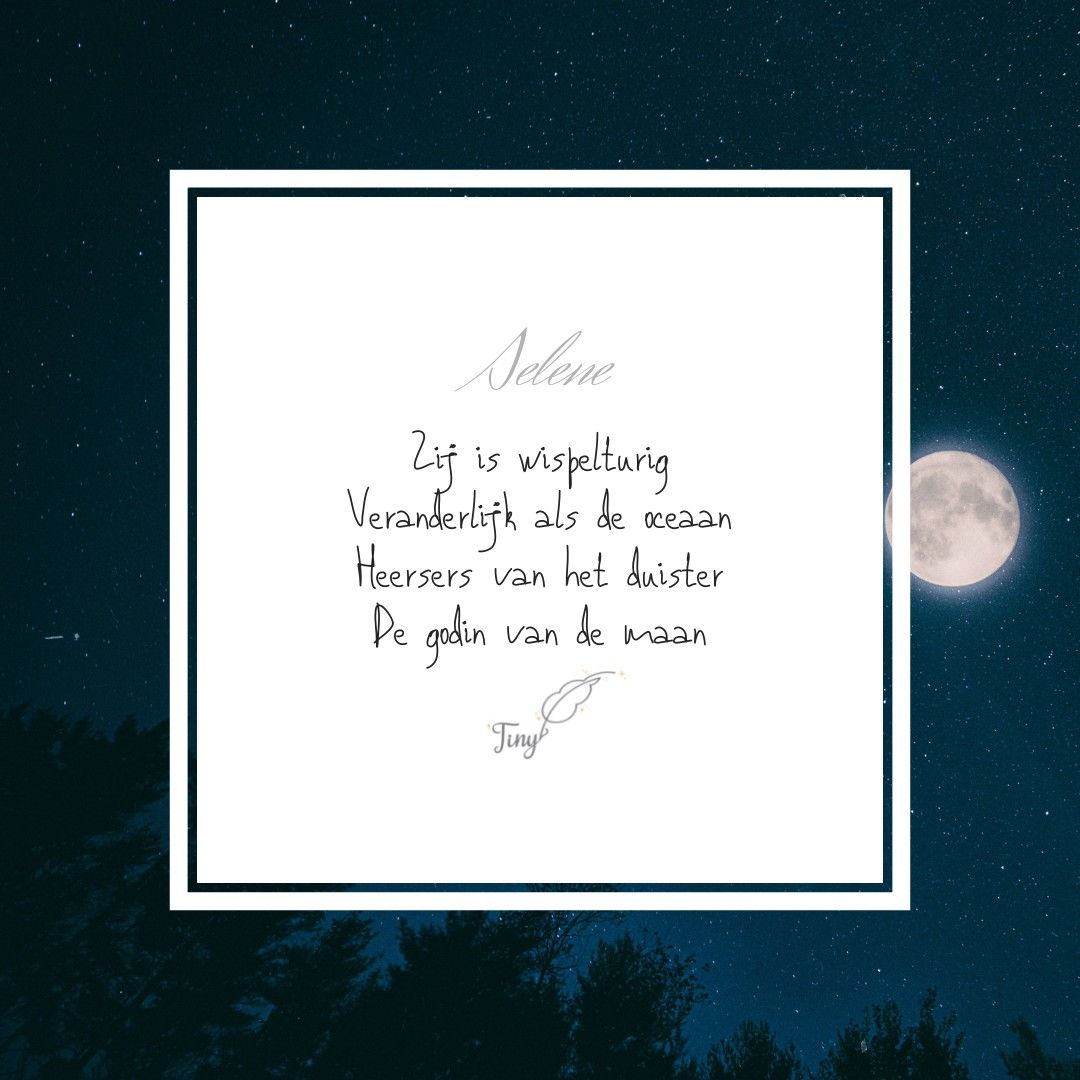 Selene
Zij is wispelturig
Veranderlijk als de oceaan
Heersers van het duister
De godin van de maan
Tiny